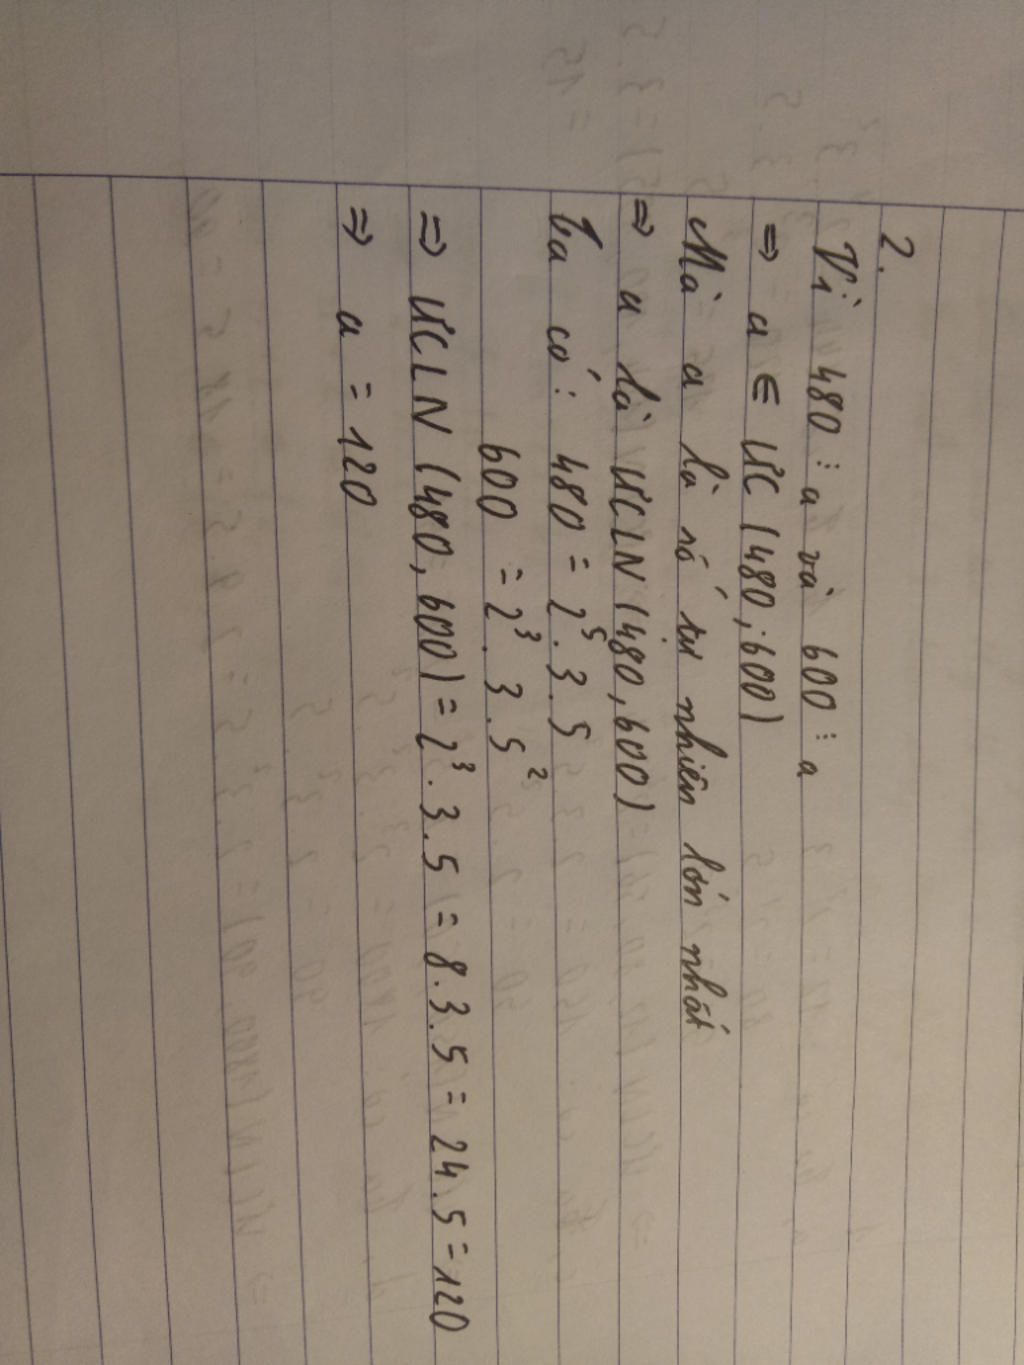 2.
Vì 480 ⋮ a và 600 ⋮ a
⇒ a ∈ ƯC (480, 600)
Mà a là số tự nhiên lớn nhất
⇒ a là ƯCLN (480, 600)
Ta có: 480 = 2⁵. 3. 5
600 = 2³. 3. 5²
⇒ ƯCLN (480, 600) = 2³. 3. 5 = 8. 3. 5 = 24. 5 = 120
⇒ a = 120